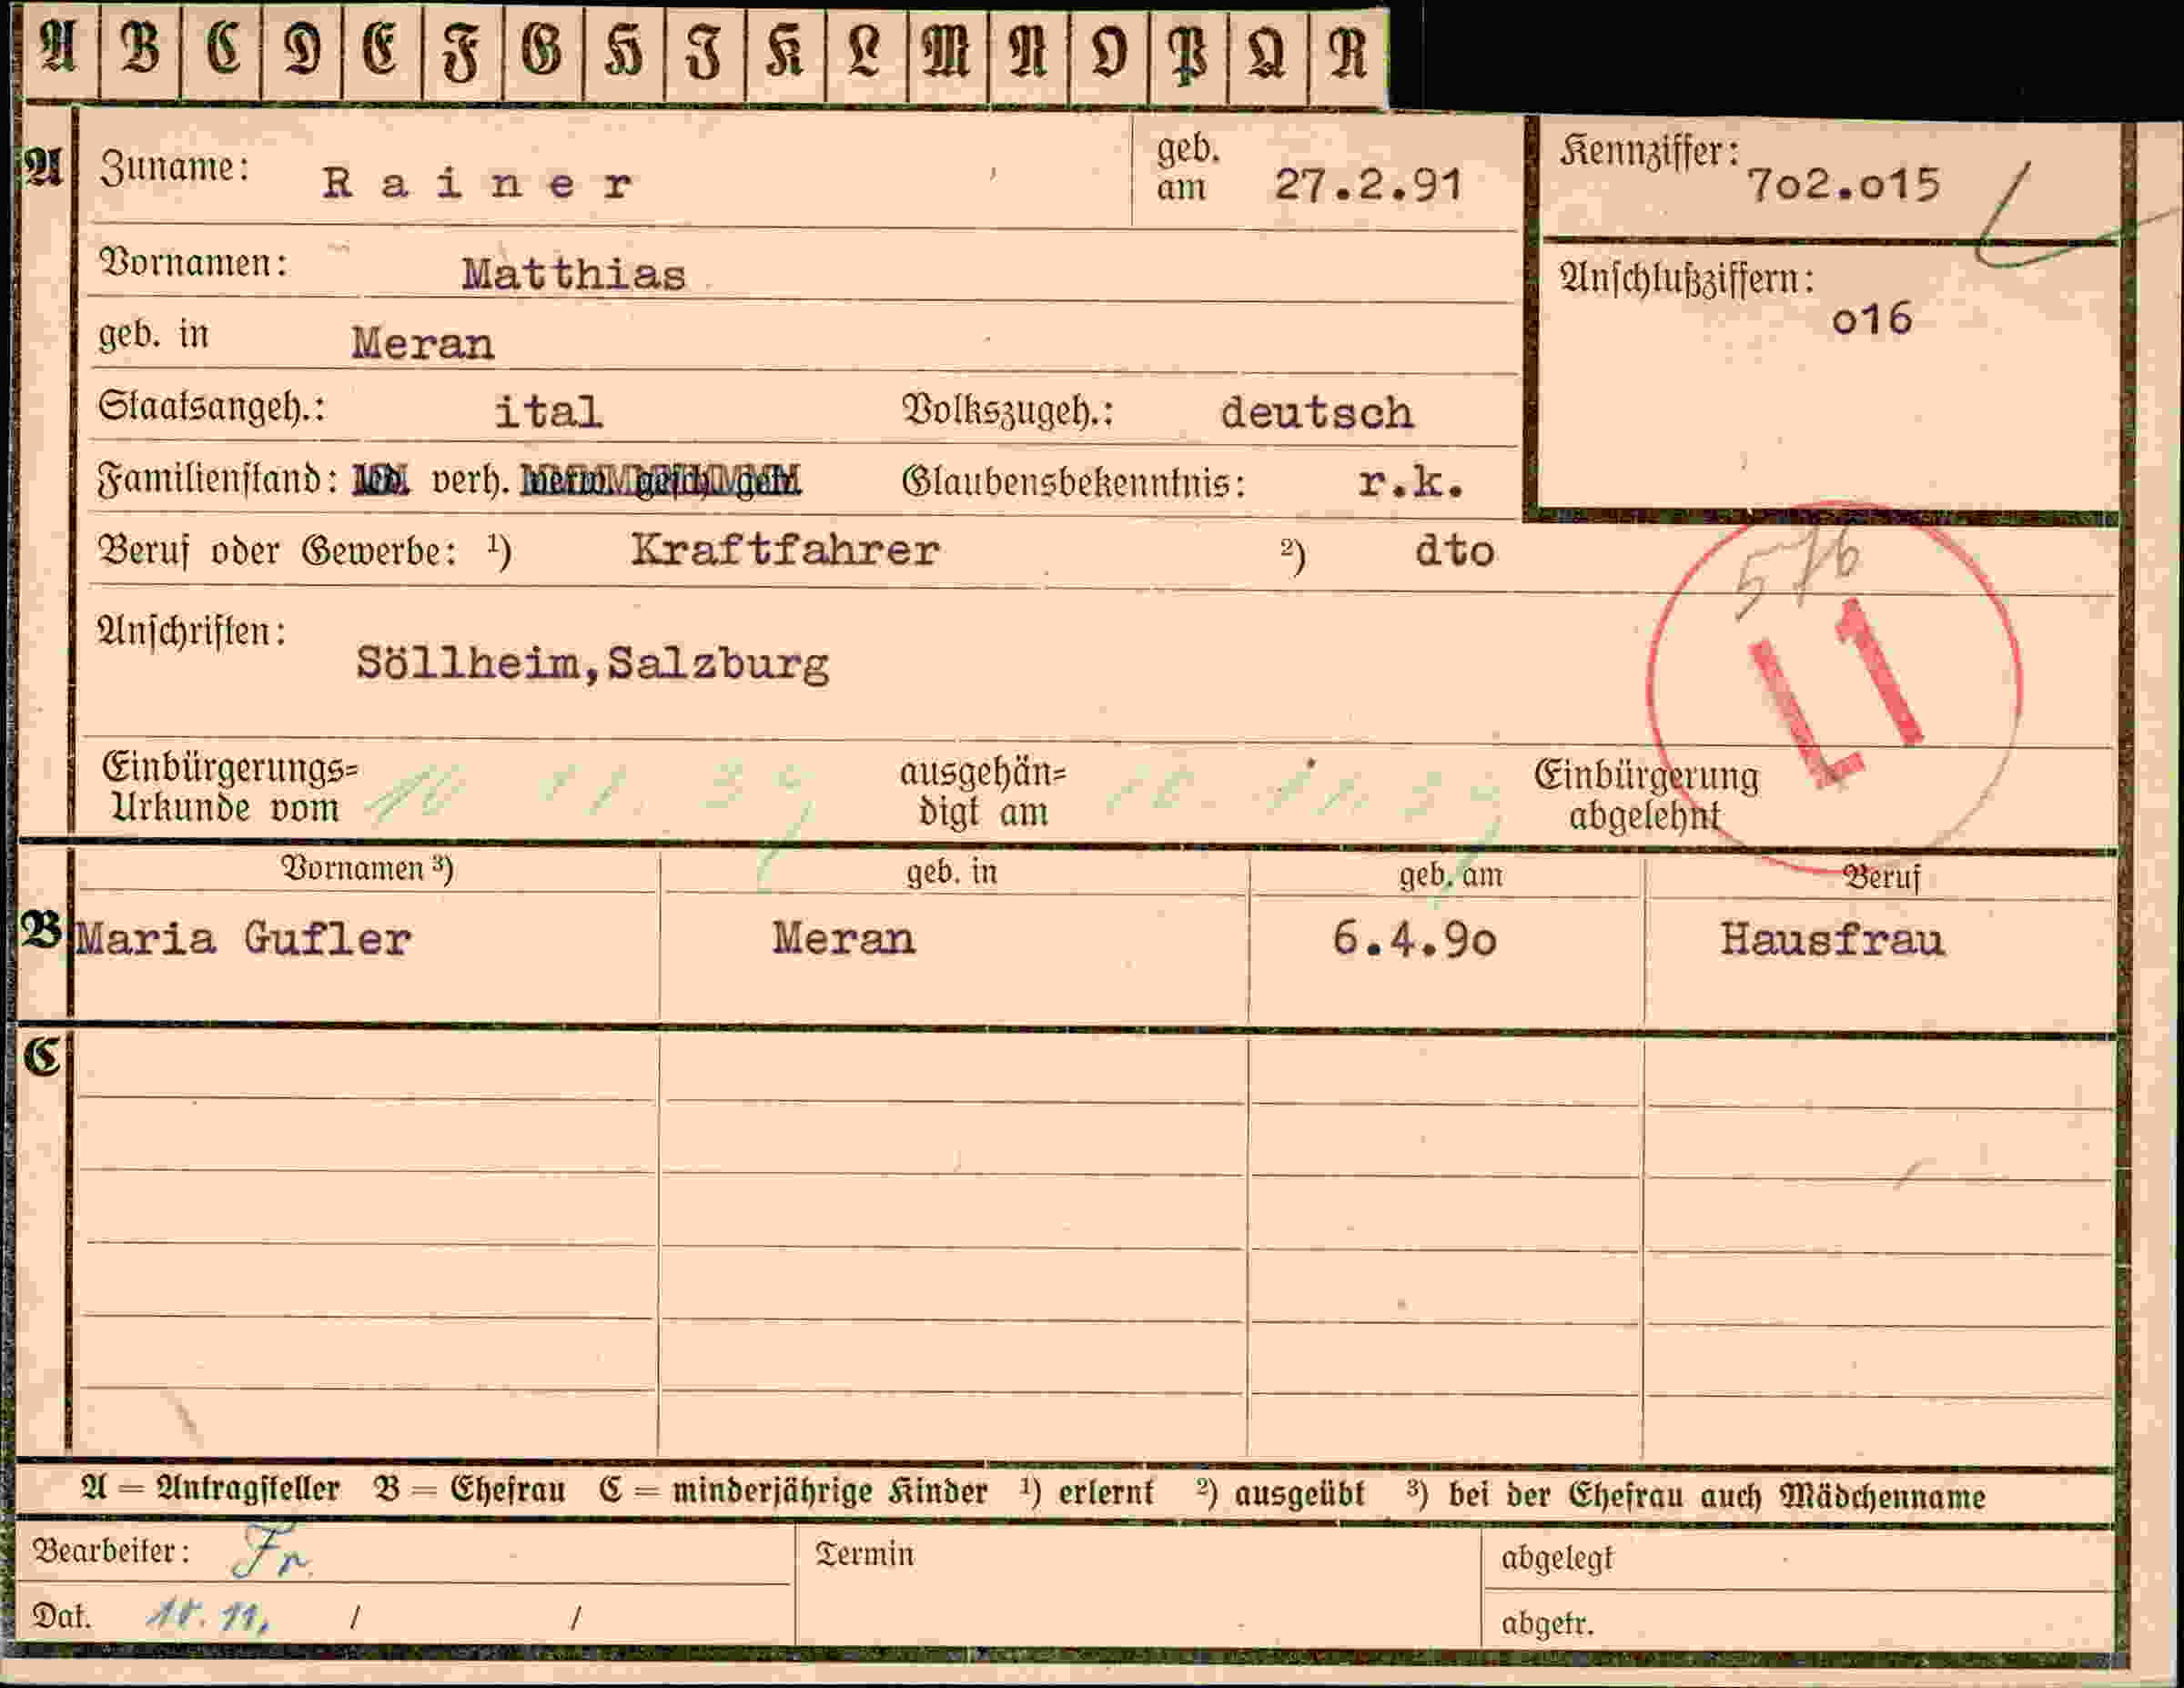 A B C D E F G H I K L M N O P Q R
A Zuname: Rainer geb. am 27.2.91 Kennziffer: 7o2.o15
Vornamen: Matthias
Anschlußziffern: o16
geb. in Meran
Staatsangeh.: ital Volkszugeh.: deutsch
Familienstand: led. verh. verw. gesch. getr. Glaubensbekenntnis: r.k.
Beruf oder Gewerbe: 1) Kraftfahrer 2) dto
576
L1
Anschriften: Söllheim,Salzburg
Einbürgerungs= Urkunde vom 10 11. 39 ausgehän= digt am 10. 11. 39 Einbürgerung abgelehnt
Vornamen 3) geb. in geb. am Beruf
B Maria Gufler Meran 6.4.9o Hausfrau
C
A = Antragsteller B = Ehefrau C = minderjährige Kinder 1) erlernt 2) ausgeübt 3) bei der Ehefrau auch Mädchenname
Bearbeiter: Fr. Termin abgelegt
Dat. 10. 11. / / abgetr.